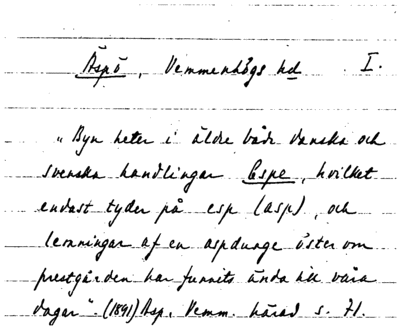 Äspö, Vemmenhögs hd I.
„Byn heter i äldre både danska och
svenska handlingar Espe, hvilket
endast tyder på esp (asp), och
lemningar af en aspdunge öster om
prestgården har funnits ända till våra
dagar”. (1891) Asp, Vemm. härad s. 71.